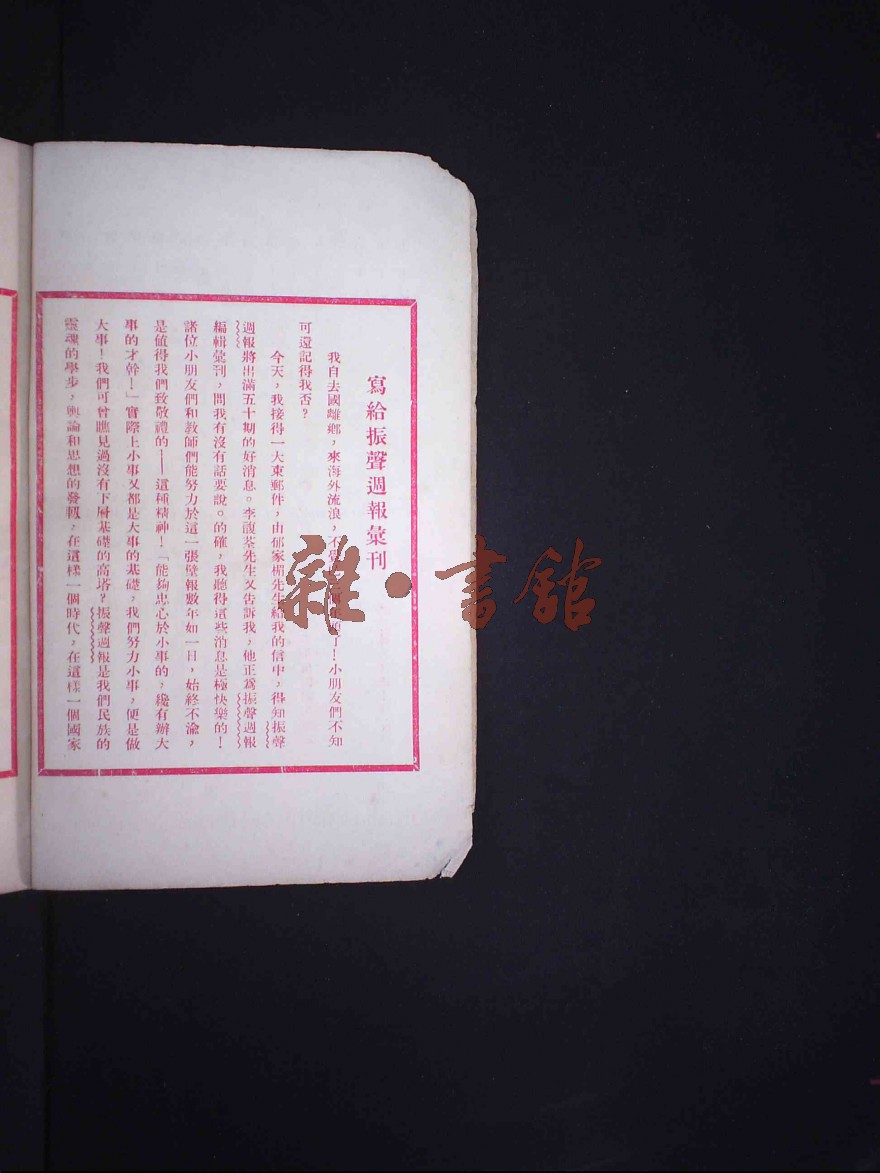 寫給振聲週報彙刊
我自去國離鄉，來海外流浪，不了！小朋友們不知
可還記得我否？
今天，我接得一大束郵件，由郁家楣先生給我的信中，得知振聲
週報將出滿五十期的好消息。李馥荃先生又告訴我，他正為振聲週報
編輯彙刊，問我有沒有話要說。的確，我聽得這些消息是極快樂的！
諸位小朋友們和教師們能努力於這一張壁報數年如一日，始終不渝，
是值得我們致敬禮的——這種精神！「能夠忠心於小事的，纔有辦大
事的才幹！」實際上小事又都是大事的基礎，我們努力小事，便是做
大事！我們可曾瞧見過沒有下層基礎的高塔？振聲週報是我們民族的
靈魂的學步，輿論和思想的發軔，在這樣一個時代，在這樣一個國家
雜·書館